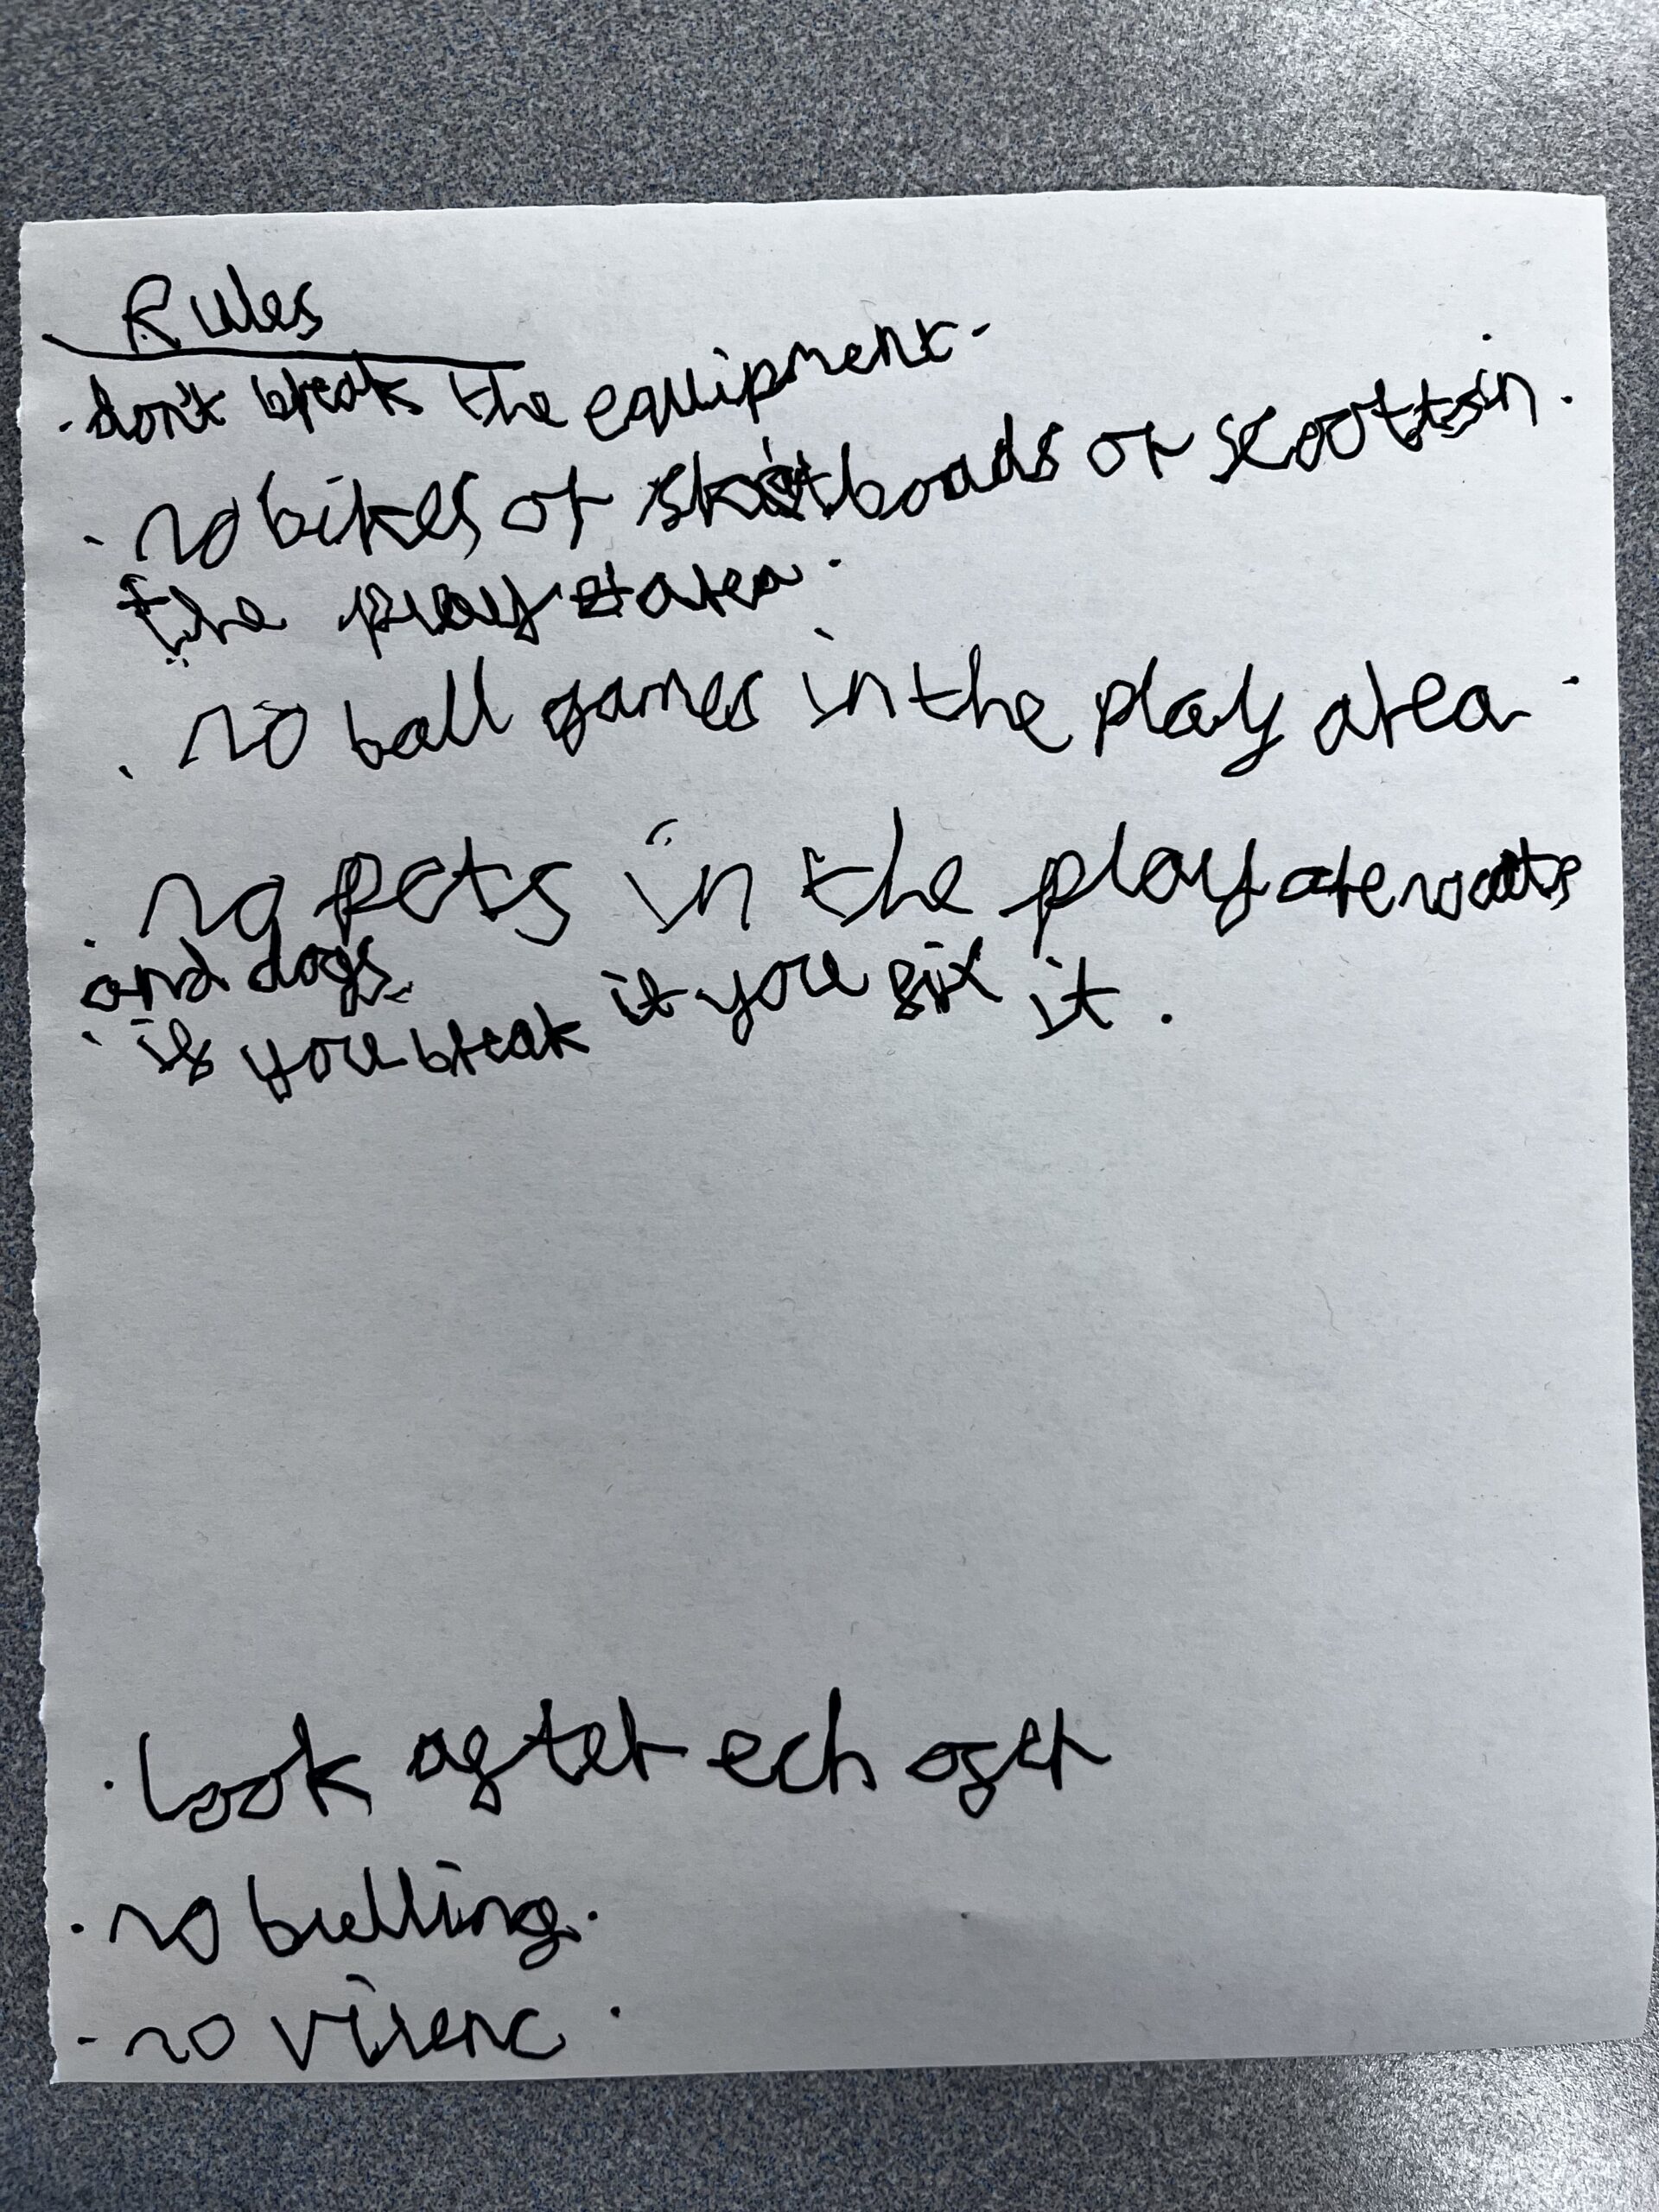 Rules
- don't break the equipment.
. no bikes or skatboads or scootts in.
the play area.
. no ball games in the play area.
. no pets in the play area no cats
and dogs.
. if you break it you fix it.
. look after ech
. no bulling.
- no vilenc.